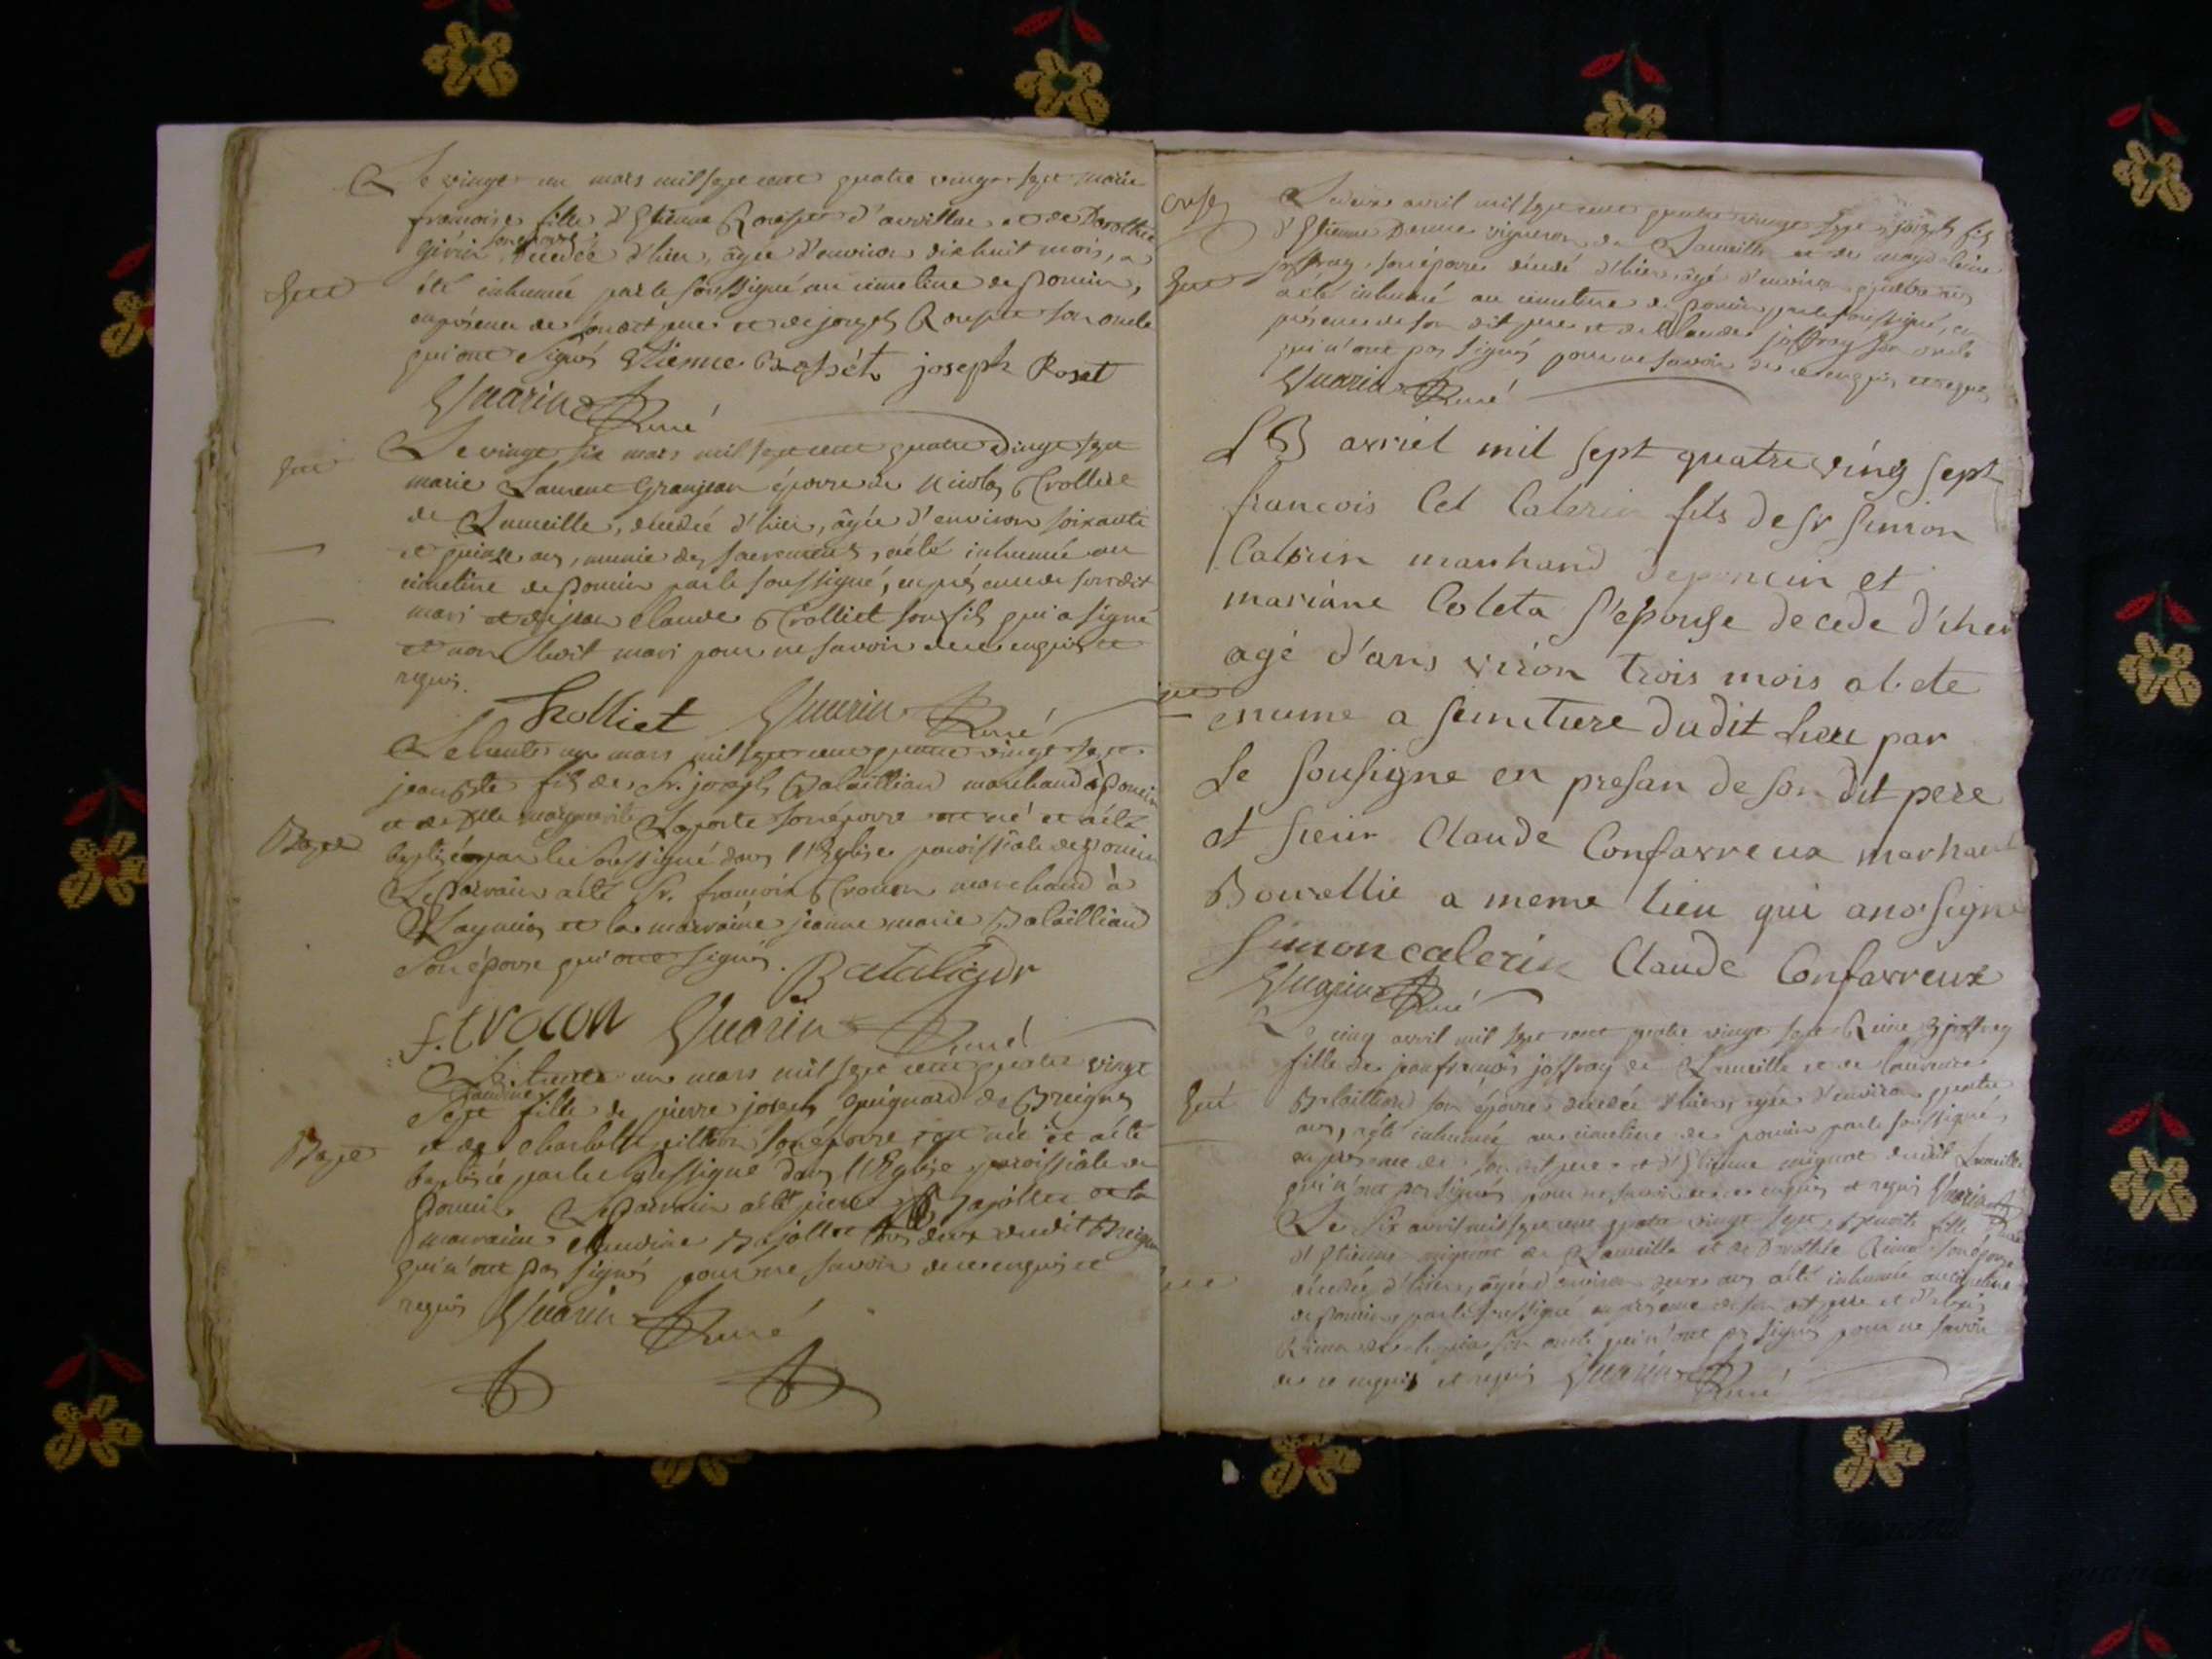 Le vingt un mars mil sept cent quatre vingt sept marie
francoise fille d'Etienne Rousset d'avrillac et de Dorothée
Givrin son épouse décédée d'hier, âgée d'environ dixhuit mois, a
Sept
été inhumée par le soussigné au cimetiere de Poncin,
en présence de son dit pere et de joseph Rousset son oncle
qui ont signés Etienne Rossét joseph Roset
Guarin Curé
Le vingt six mars mil sept cent quatre vingt sept
Sept
marie Laurent Granjean épouse de Nicolas Trolliet
de Lumeille, décédée d'hier, âgée d'environ soixante
et quinze ans, munie des sacremens, a été inhumée au
cimetiere de Poncin par le soussigné, en présence de son dit
mari et de jean claude Trolliet son fils qui a signé
et non ledit mari pour ne savoir de ce enquis et
requis.
Trolliet Guarin Curé
Le trente un mars mil sept cent quatre vingt sept
jean Bte fils de Sr. joseph Balaillian marchand à Poncin
et de Dlle marguerite Laporte son épouse est né et a été
Bapt
baptisé par le soussigné dans l'Eglise paroissiale de Poncin
Le Parrain a été Sr. françois Trocon marchand à
et la marraine jeanne marie Balailliand
son épouse qui ont signés. Batalieur
f. trocon Guarin Curé
Le trente un mars mil sept cent quatre vingt
sept Claudine fille de pierre joseph Guignard de Breignes
Bapt
et de Charlotte son épouse est née et a été
baptisée par le soussigné dans l'Eglise paroissiale de
Poncin. Le Parrain a été pierre Bajollet et la
marraine Claudine Bajollet tous deux dudit Breignes
qui n'ont pas signés pour ne savoir de ce enquis et
requis Guarin Curé
Le deux avril mil sept cent quatre vingt sept joseph fils
d'Etienne vigneron de Lumeille et de magdelaine
joffray son épouse décédé d'hier, âgé d'environ quatre ans
Sept
a été inhumé au cimetiere de Poncin par le soussigné, en
présence de son dit pere et de Claude joffray son oncle
qui n'ont pas signés pour ne savoir de ce enquis et requis
Guarin Curé
avriel mil sept quatre ving sept
francois Cet Calerin fits de sr simon
Calerin marchand deponcin et
mariane Coleta s'epouse decede d'iher
agé d'ans viron trois mois a l ete
enume a seimetiere dudit Lieu par
Le sousigne en presan de son dit pere
et sieur Claude Confavreux marhant
Bourellie a meme lieu qui anos signe
Simon calerin Claude Confavreux
Guarin Curé
Le cinq avril mil sept cent quatre vingt sept Reine joffray
fille de jean françois joffray de Lumeille et de laurence
Sept
Balailliand son épouse décédée d'hier, agée d'environ quatre
ans, a été inhumée au cimetiere de poncin par le soussigné
en présence de son dit pere et d'Etienne mignot dudit Lumeille
qui n'ont pas signés pour ne savoir de ce enquis et requis Guarin Curé
Le six avril mil sept cent quatre vingt sept, Benoite fille
d'Etienne mignot de Lumeille et de Dorothée son épouse
Sept
décédée d'hier, âgée d'environ deux ans a été inhumée au cimetiere
de Poncin par le soussigné en présence de son dit pere et d'alexis
son oncle qui n'ont pas signés pour ne savoir
de ce enquis et requis Guarin Curé